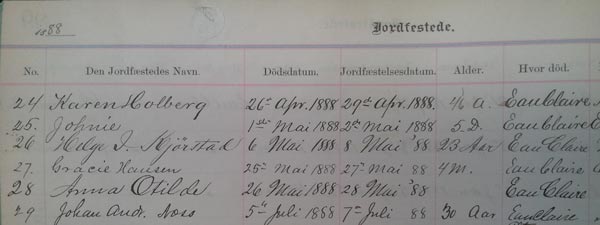 1888
Jordfestede.
No. Den Jordfæstedes Navn. Dödsdatum. Jordfæstelsesdatum. Alder. Hvor död.
24 Karen Holberg 26de Apr. 1888 29de Apr. 1888 46 A. Eau Claire
25. Johnie 1ste Mai 1888 2de Mai 1888 5. D. Eau Claire
26 Helge I. Kjörstad 6 Mai 1888 8 Mai '88 23 Aar Eau Claire
27. Gracie Hansen 25de Mai 1888 27de Mai 88 4 M. Eau Claire
28 Anna Otilde 26 Mai 1888 28 Mai '88 Eau Claire
29 Johan Andr. Noss 5te Juli 1888 7de Juli 88 30 Aar Eau Claire